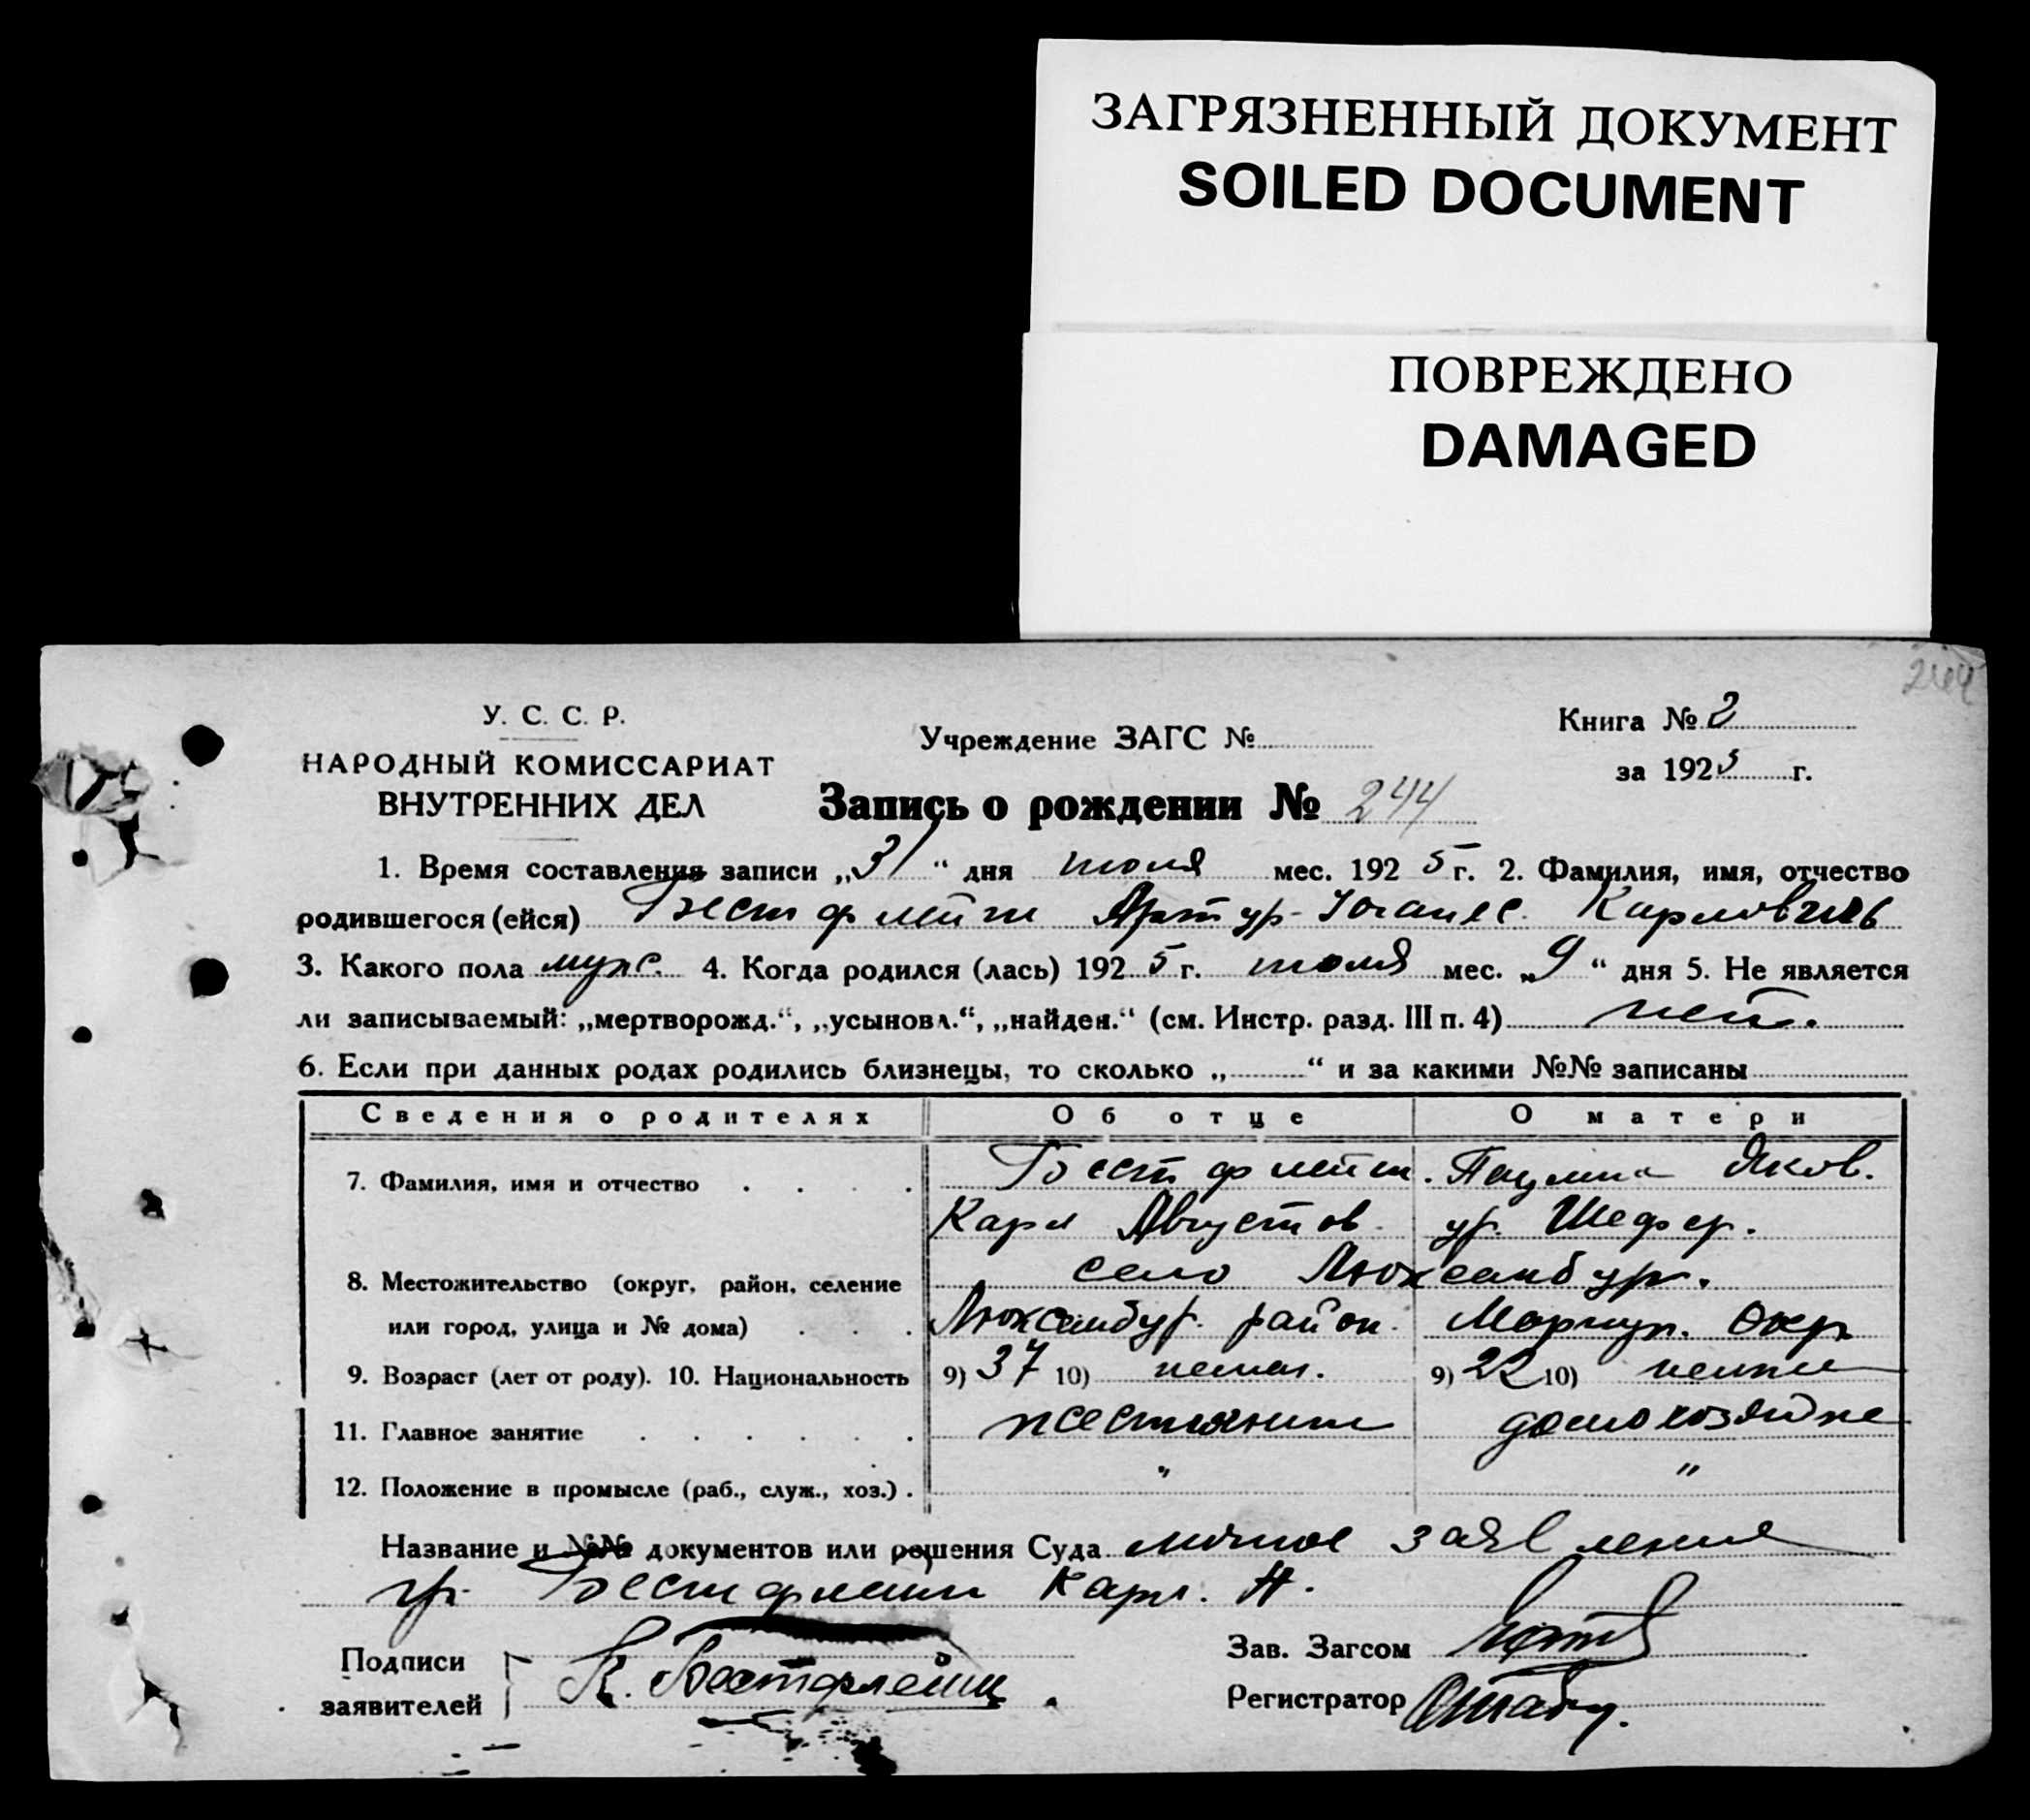 ЗАГРЯЗНЕННЫЙ ДОКУМЕНТ
SOILED DOCUMENT
ПОВРЕЖДЕНО
DAMAGED
244
У. С. С. Р.
НАРОДНЫЙ КОМИССАРИАТ
ВНУТРЕННИХ ДЕЛ
Учреждение ЗАГС №
Книга № 2
за 1925 г.
Запись о рождении № 244
1. Время составления записи „31“ дня июля мес. 1925 г. 2. Фамилия, имя, отчество
родившегося (ейся) Артур-Иоганес Карлович
3. Какого пола муж. 4. Когда родился (лась) 1925 г. июля мес. „9“ дня 5. Не является
ли записываемый: „мертворожд.“, „усыновл.“, „найден.“ (см. Инстр. разд. III п. 4) нет.
6. Если при данных родах родились близнецы, то сколько „ “ и за какими №№ записаны
Сведения о родителях Об отце О матери
7. Фамилия, имя и отчество Паулина Яков.
Карл Августов. ур. Шефер.
8. Местожительство (округ, район, селение село Люксембург.
или город, улица и № дома) Люксембур. район. Мариуп. Окр
9. Возраст (лет от роду). 10. Национальность 9) 37 10) немец. 9) 22 10) немка
11. Главное занятие домохозяйка
12. Положение в промысле (раб., служ., хоз.) . " "
Название и №№ документов или решения Суда личное заявление
гр. Карл. А.
Подписи
заявителей К.
Зав. Загсом
Регистратор